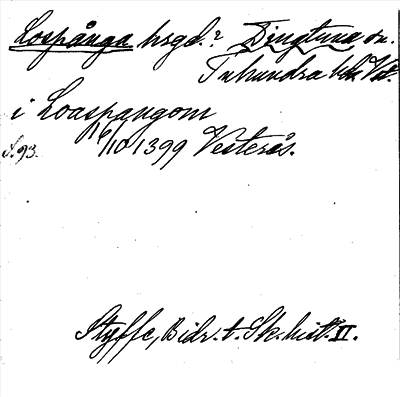 Lospånga hrgd.? Dingtuna sn.
Tuhundra hd. Vstm.
i Loaspangom
S. 93. 16/10 1399 Vesterås.
Styffe, Bidr. t. Sk. hist. II.